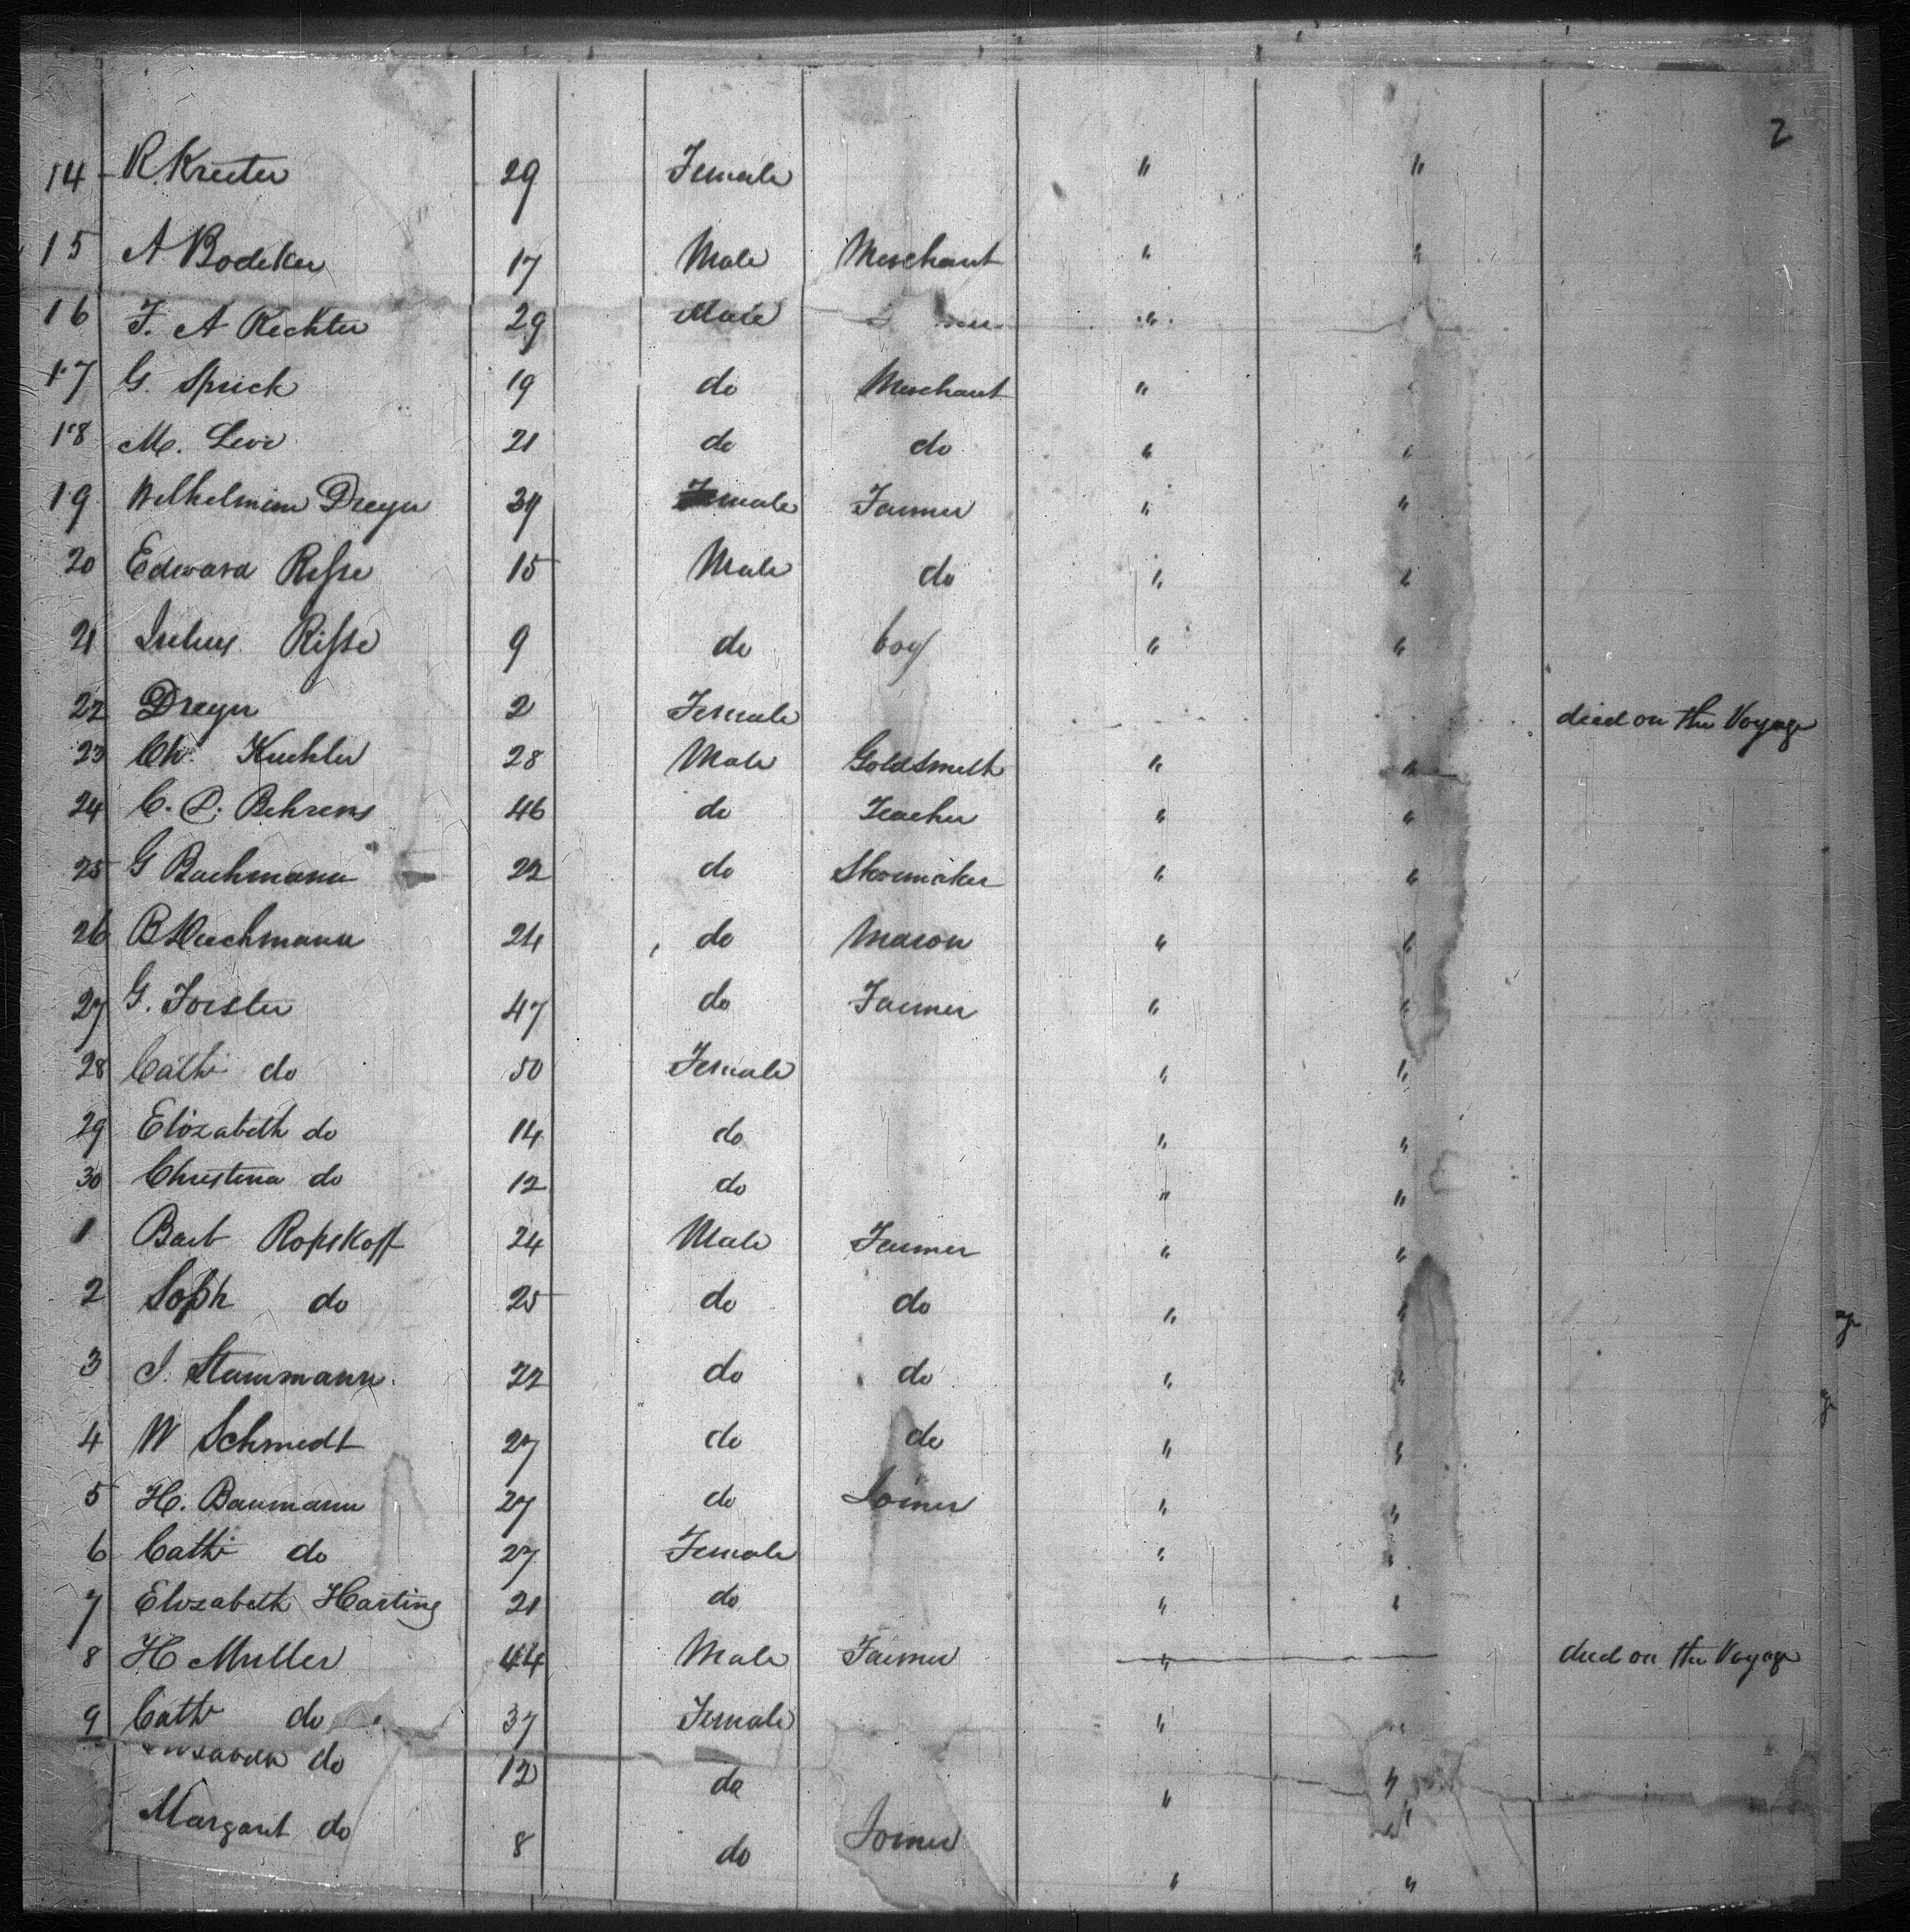 2
14 R. Kreeter 29 Female " "
15 A Bodeker 17 Male Merchant " "
16 F. A Rechter 29 Male "
17 G. Sprick 19 do Merchant " "
18 M. Levi 21 do do " "
19 Wilhelmine Dreyer 34 Female Farmer " "
20 Edward Risse 15 Male do " "
21 Julius Risse 9 do boy " "
22 Dreyer 2 Female died on the Voyage
23 Ch. Kuehler 28 Male Goldsmith " "
24 C. D. Behrens 46 do Teacher " "
25 G Bachmann 22 do Shoemaker " "
26 B 24 do Mason " "
27 G. Forster 47 do Farmer " "
28 Cath do 50 Female " "
29 Elizabeth do 14 do " "
30 Christina do 12 do " "
1 Bart Ropskoff 24 Male Farmer " "
2 Soph do 25 do do " "
3 J. Stammann 22 do do " "
4 W Schmidt 27 do do " "
5 H. Baumann 27 do Joiner " "
6 Cath do 27 Female " "
7 Elizabeth Harting 21 do " "
8 H Muller 44 Male Farmer " died on the Voyage
9 Cath do 37 Female " "
do 12 do " "
Margaret do 8 do Joiner " "